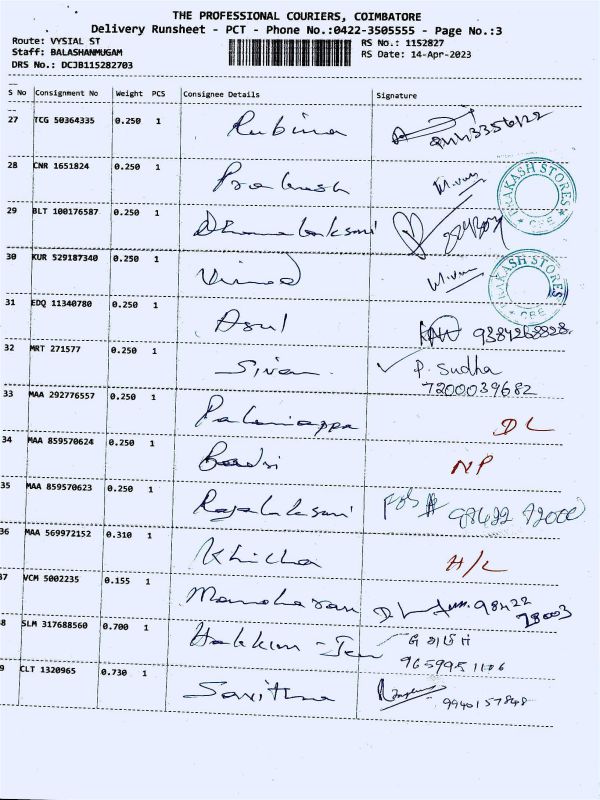 THE PROFESSIONAL COURIERS, COIMBATORE
Delivery Runsheet - PCT - Phone No.:0422-3505555 - Page No.:3
Route: VYSIAL ST
RS No.: 1152827
Staff: BALASHANMUGAM
RS Date: 14-Apr-2023
DRS No.: DCJB115282703
S No Consignment No Weight PCS Consignee Details Signature
27 TCG 50364335 0.250 1 Rubina
28 CNR 1651824 0.250 1 Prakash
PRAKASH STORES CBE
29 BLT 100176587 0.250 1 Dhanalaksmi
30 KUR 529187340 0.250 1 Vinod
PRAKASH STORES CBE
31 EDQ 11340780 0.250 1 Asul 9384268828
32 MRT 271577 0.250 1 Sivan P. Sudha
7200039682
33 MAA 292776557 0.250 1 Palaniappa DL
34 MAA 859570624 0.250 1 Badri NP
35 MAA 859570623 0.250 1 Rajalaksmi 98422 72000
36 MAA 569972152 0.310 1 Khicha H/L
37 VCM 5002235 0.155 1 Manoharan 98422
78003
8 SLM 317688560 0.700 1 Hakkim - Jen
9659951106
9 CLT 1320965 0.730 1 Savithra
9940157848